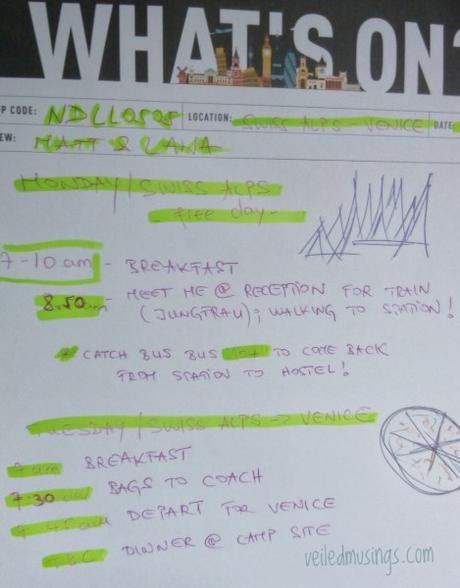 WHAT'S ON?
P CODE: LOCATION: SWISS ALPS VENICE DATE
EW: MATT & LANA
MONDAY / SWISS ALPS
- free day -
7-10 am - BREAKFAST
8.50am - MEET ME @ RECEPTION FOR TRAIN
(JUNGFRAU); WALKING TO STATION!
* CATCH BUS BUS TO COME BACK
FROM STATION TO HOSTEL!
TUESDAY / SWISS ALPS -> VENICE
7am BREAKFAST
7.30am BAGS TO COACH
7.45am DEPART FOR VENICE
TBC DINNER @ CAMP SITE
veiledmusings.com